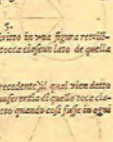 5.
critto in vna figura rettili-
tocca ciascun lato de quella
precedente) il qual vien detto
onferentia di quello toca cia-
tto quando così fusse in ogni